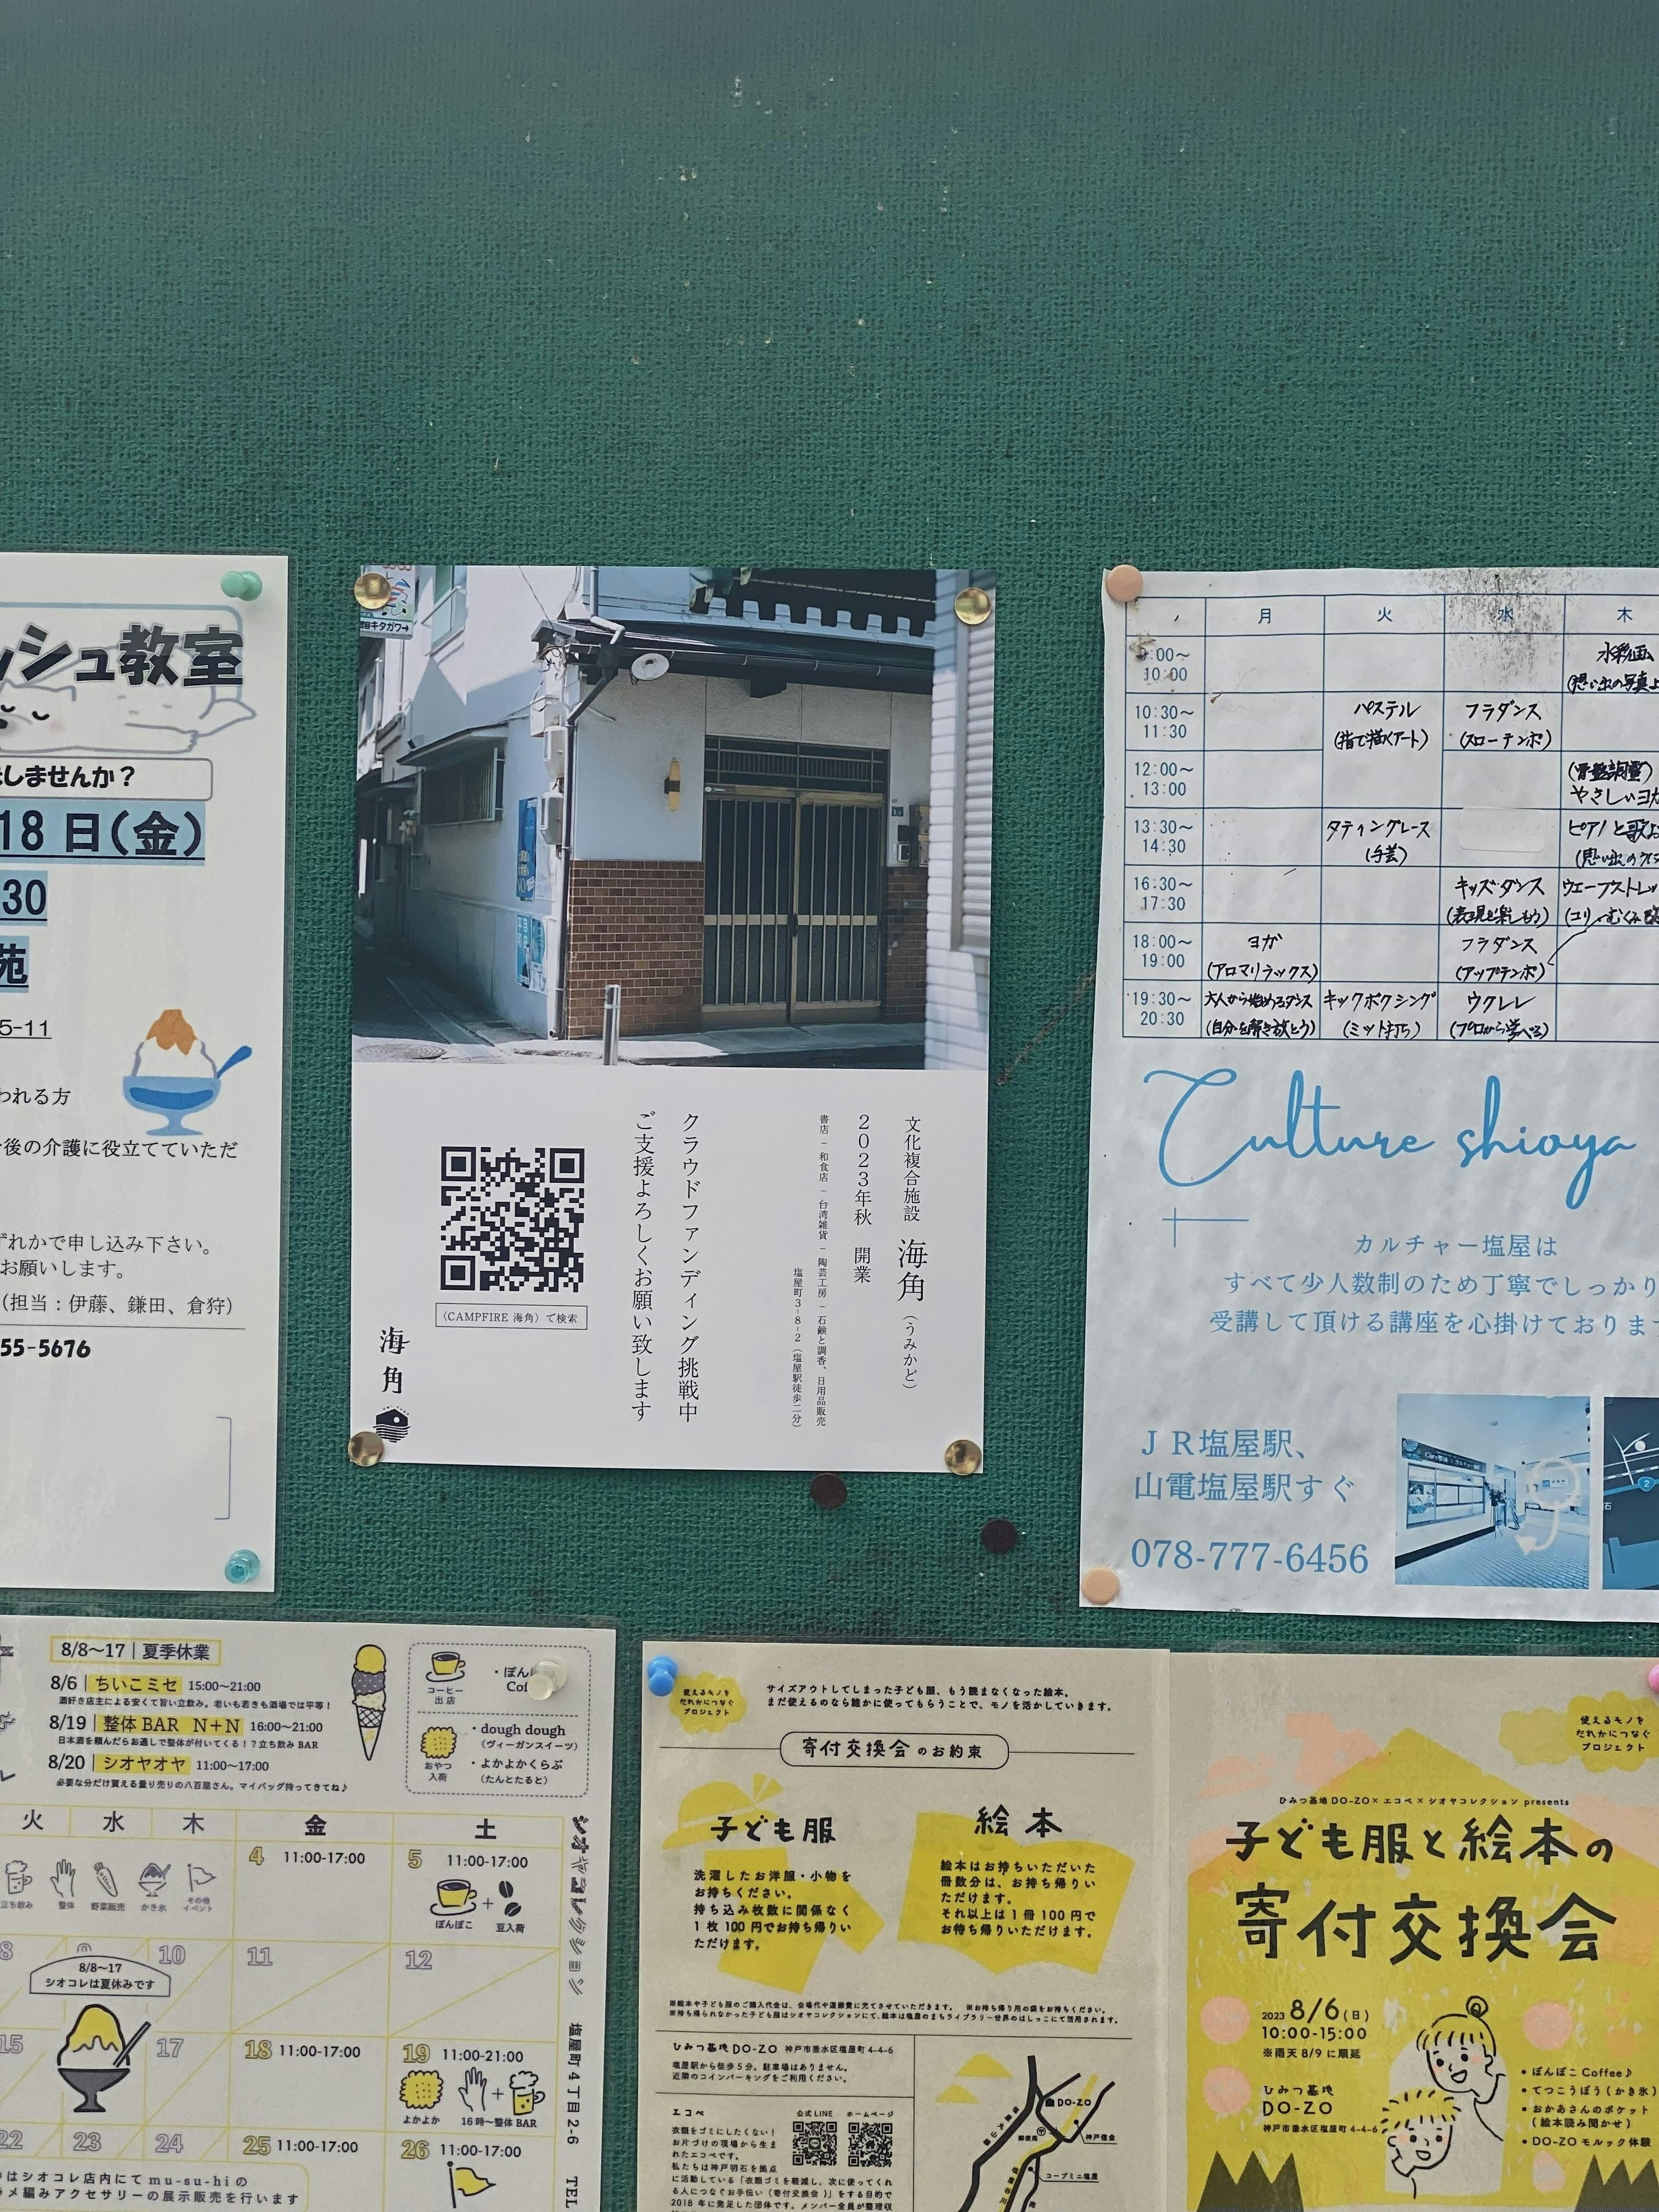 ッシュ教室
しませんか？
18日(金)
30
苑
5-11
われる方
後の介護に役立てていただ
ずれかで申し込み下さい。
お願いします。
(担当：伊藤、鎌田、倉狩)
55-5676
キタガワ→
文化複合施設 海角 (うみかど)
2023年秋 開業
書店 – 和食店 – 台湾雑貨 – 陶芸工房 – 石鹸と調香、日用品販売
塩屋町3-8-2（塩屋駅徒歩二分）
クラウドファンディング挑戦中
ご支援よろしくお願い致します
〈CAMPFIRE 海角〉で検索
海角
月 火 水 木
9:00～10:00 水彩画
10:30～11:30 パステル (指で描くアート) フラダンス (スローテンポ)
12:00～13:00 (骨盤調整) やさしいヨガ
13:30～14:30 タティングレース (手芸) ピアノと歌
16:30～17:30 キッズダンス (表現を楽しもう) ウエーブストレッ
18:00～19:00 ヨガ (アロマリラックス) フラダンス (アップテンポ)
19:30～20:30 大人から始めるダンス (自分を解き放とう) キックボクシング (ミット打ち) ウクレレ (プロから学べる)
Culture shioya
カルチャー塩屋は
すべて少人数制のため丁寧でしっかり
受講して頂ける講座を心掛けております
ＪＲ塩屋駅、
山電塩屋駅すぐ
078-777-6456
8/8～17｜夏季休業
8/6｜ちいこミセ 15:00～21:00
酒好き店主による安くて旨い立飲み。老いも若きも酒場では平等！
8/19｜整体BAR N+N 16:00～21:00
日本酒を頼んだらお通しで整体が付いてくる！？立ち飲みBAR
8/20｜シオヤオヤ 11:00～17:00
必要な分だけ買える量り売りの八百屋さん。マイバッグ持ってきてね♪
コーヒー出店
・ぽん
Cof
おやつ入荷
・dough dough
（ヴィーガンスイーツ）
・よかよかくらぶ
（たんとたると）
火 水 木 金 土
立ち飲み 整体 野菜販売 かき氷 その他イベント
4 11:00-17:00
5 11:00-17:00
ぽんぽこ + 豆入荷
8 9 10 11 12
8/8～17
シオコレは夏休みです
15 17
18 11:00-17:00
19 11:00-21:00
よかよか 16時～整体BAR
22 23 24
25 11:00-17:00
26 11:00-17:00
はシオコレ店内にて mu-su-hi の
メ編みアクセサリーの展示販売を行います
シオヤコレクション 塩屋町4丁目2-6 TEL
使えるモノを
だれかにつなぐ
プロジェクト
サイズアウトしてしまった子ども服、もう読まなくなった絵本。
まだ使えるのなら誰かに使ってもらうことで、モノを活かしていきます。
寄付交換会のお約束
子ども服
洗濯したお洋服・小物を
お持ちください。
持ち込み枚数に関係なく
1枚100円でお持ち帰りい
ただけます。
絵本
絵本はお持ちいただいた
冊数分は、お持ち帰りい
ただけます。
それ以上は1冊100円で
お持ち帰りいただけます。
※絵本や子ども服のご購入代金は、会場代や運搬費に充てさせていただきます。 ※お持ち帰り用の袋をお持ちください。
※持ち帰られなかった子ども服はシオヤコレクションにて、絵本は塩屋のまちライブラリー世界のはしっこにて活用されます。
ひみつ基地 DO-ZO 神戸市垂水区塩屋町 4-4-6
塩屋駅から徒歩5分。駐車場はありません。
近隣のコインパーキングをご利用ください。
エコペ
公式LINE ホームページ
衣類をゴミにしたくない！
お片づけの現場から生ま
れたエコペです。
私たちは神戸明石を拠点
に活動している「衣類ゴミを軽減し、次に使ってくれ
る人につなぐお手伝い（寄付交換会）」をする目的で
2018年に発足した団体です。メンバー全員が整理収
DO-ZO
郵便局
神戸信金
コープミニ塩屋
使えるモノを
だれかにつなぐ
プロジェクト
ひみつ基地 DO-ZO × エコペ × シオヤコレクション presents
子ども服と絵本の
寄付交換会
2023 8/6(日)
10:00-15:00
※雨天 8/9 に順延
ひみつ基地
DO-ZO
神戸市垂水区塩屋町 4-4-6
・ぽんぽこ Coffee♪
・てつこうぼう（かき氷）
・おかあさんのポケット
（絵本読み聞かせ）
・DO-ZO モルック体験